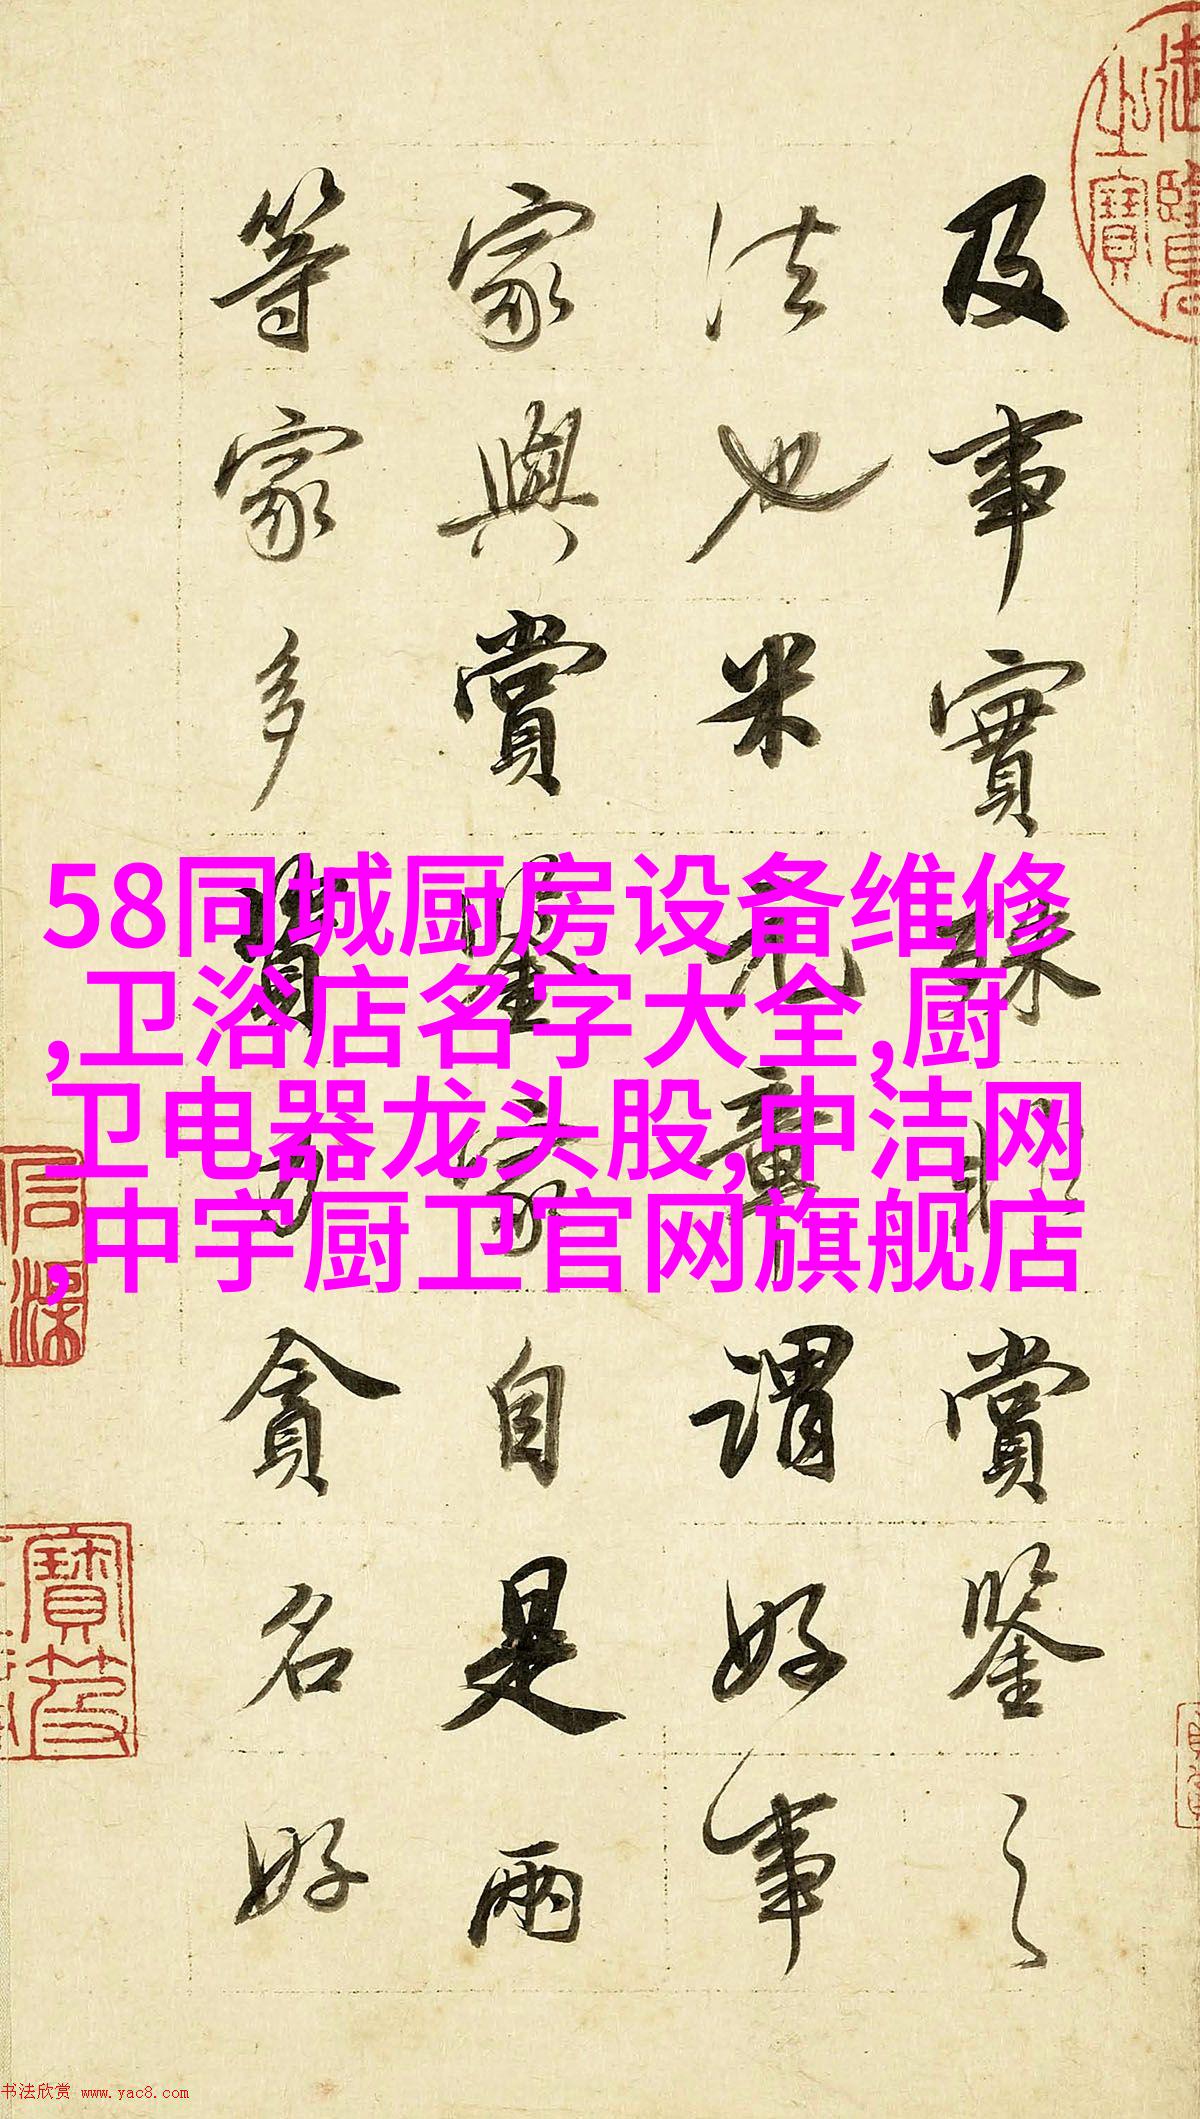 及事實殊非賞鑒之
法也米元章謂好事
家與賞鑒家自是兩
等家多資力貪名好
58同城厨房设备维修
,卫浴店名字大全,厨
卫电器龙头股,中洁网
,中宇厨卫官网旗舰店
书法欣赏 www.yac8.com